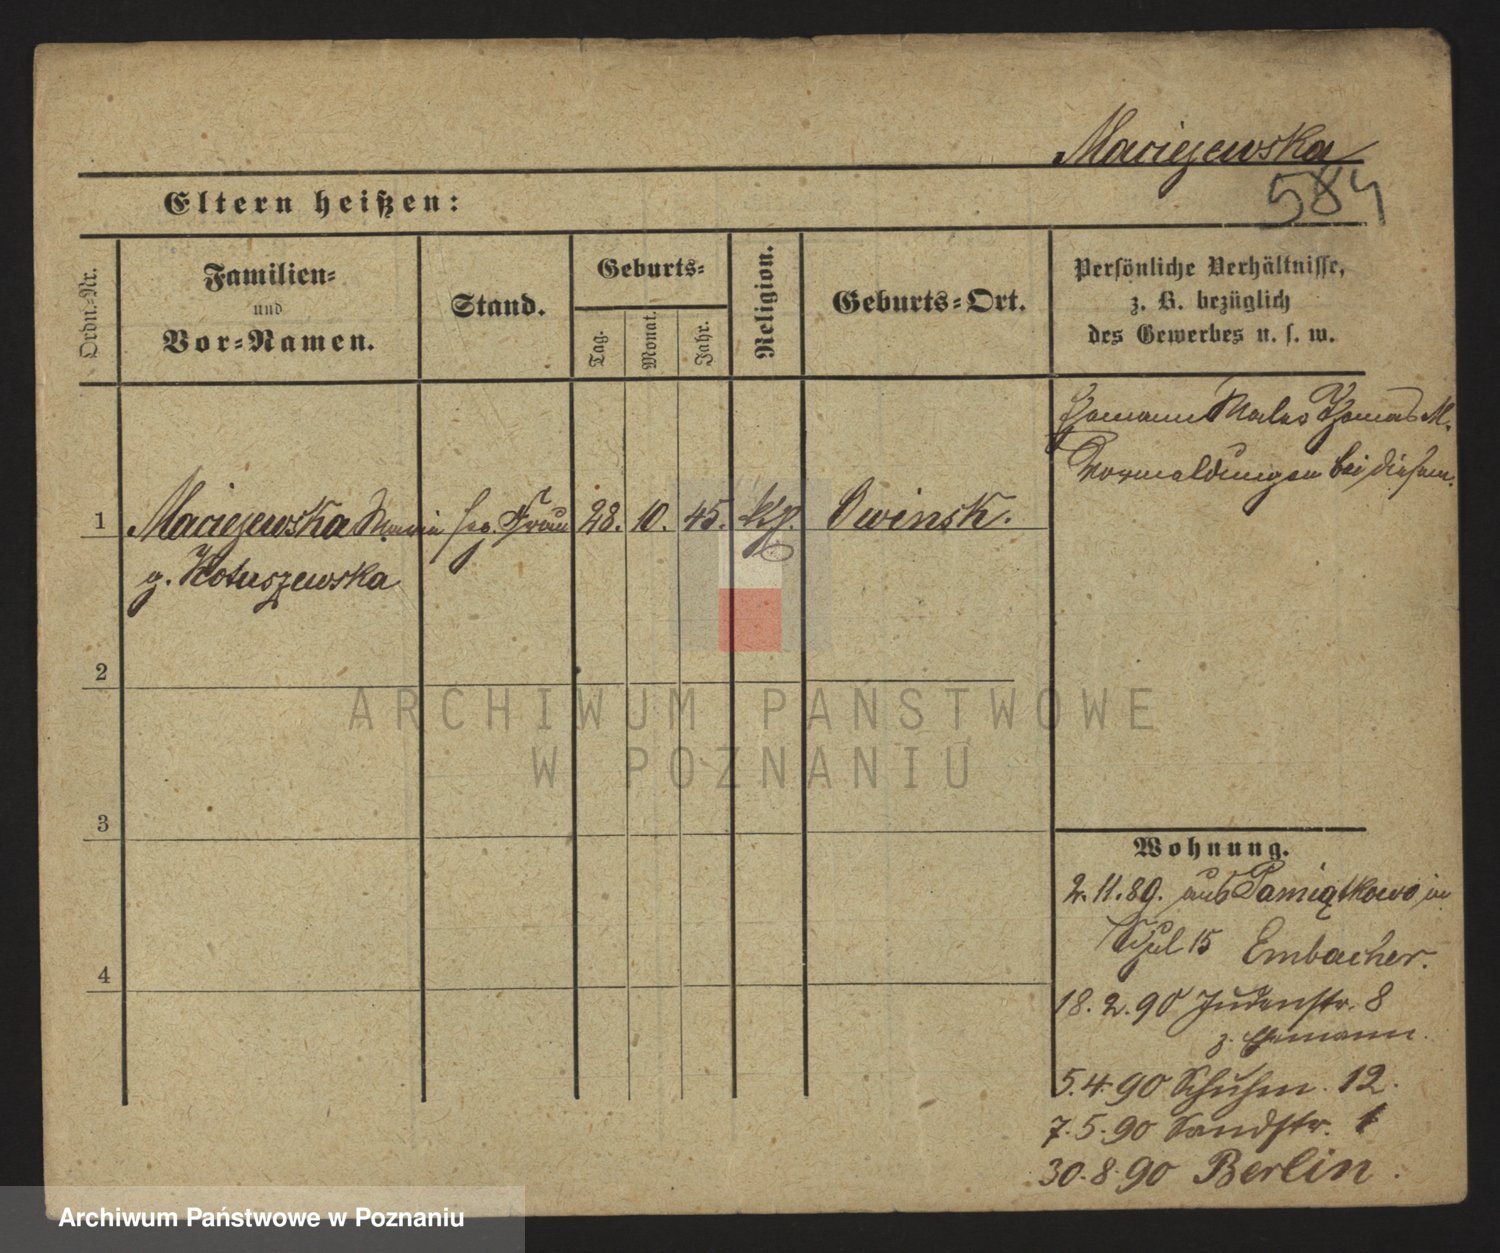 Maciejewska
584
Eltern heißen:
Ordn.-Nr.
Familien-
und
Vor-Namen.
Stand.
Geburts-
Tag.
Monat.
Jahr.
Religion.
Geburts-Ort.
Persönliche Verhältnisse,
z. B. bezüglich
des Gewerbes u. s. w.
Ehemann Maler Thomas M.
Vormeldungen bei diesem.
1 Maciejewska Maria sep. Frau 28. 10. 45. Owinsk.
g. Kotuszewska
2
3
4
Wohnung.
2.11.89. aus Pamiątkowo in
15 Embacher.
18.2.90 Judenstr. 8
z. Ehemann.
5.4.90 Schuhm. 12.
7.5.90 Sandstr. 1
30.8.90 Berlin.
ARCHIWUM PAŃSTWOWE
W POZNANIU
Archiwum Państwowe w Poznaniu